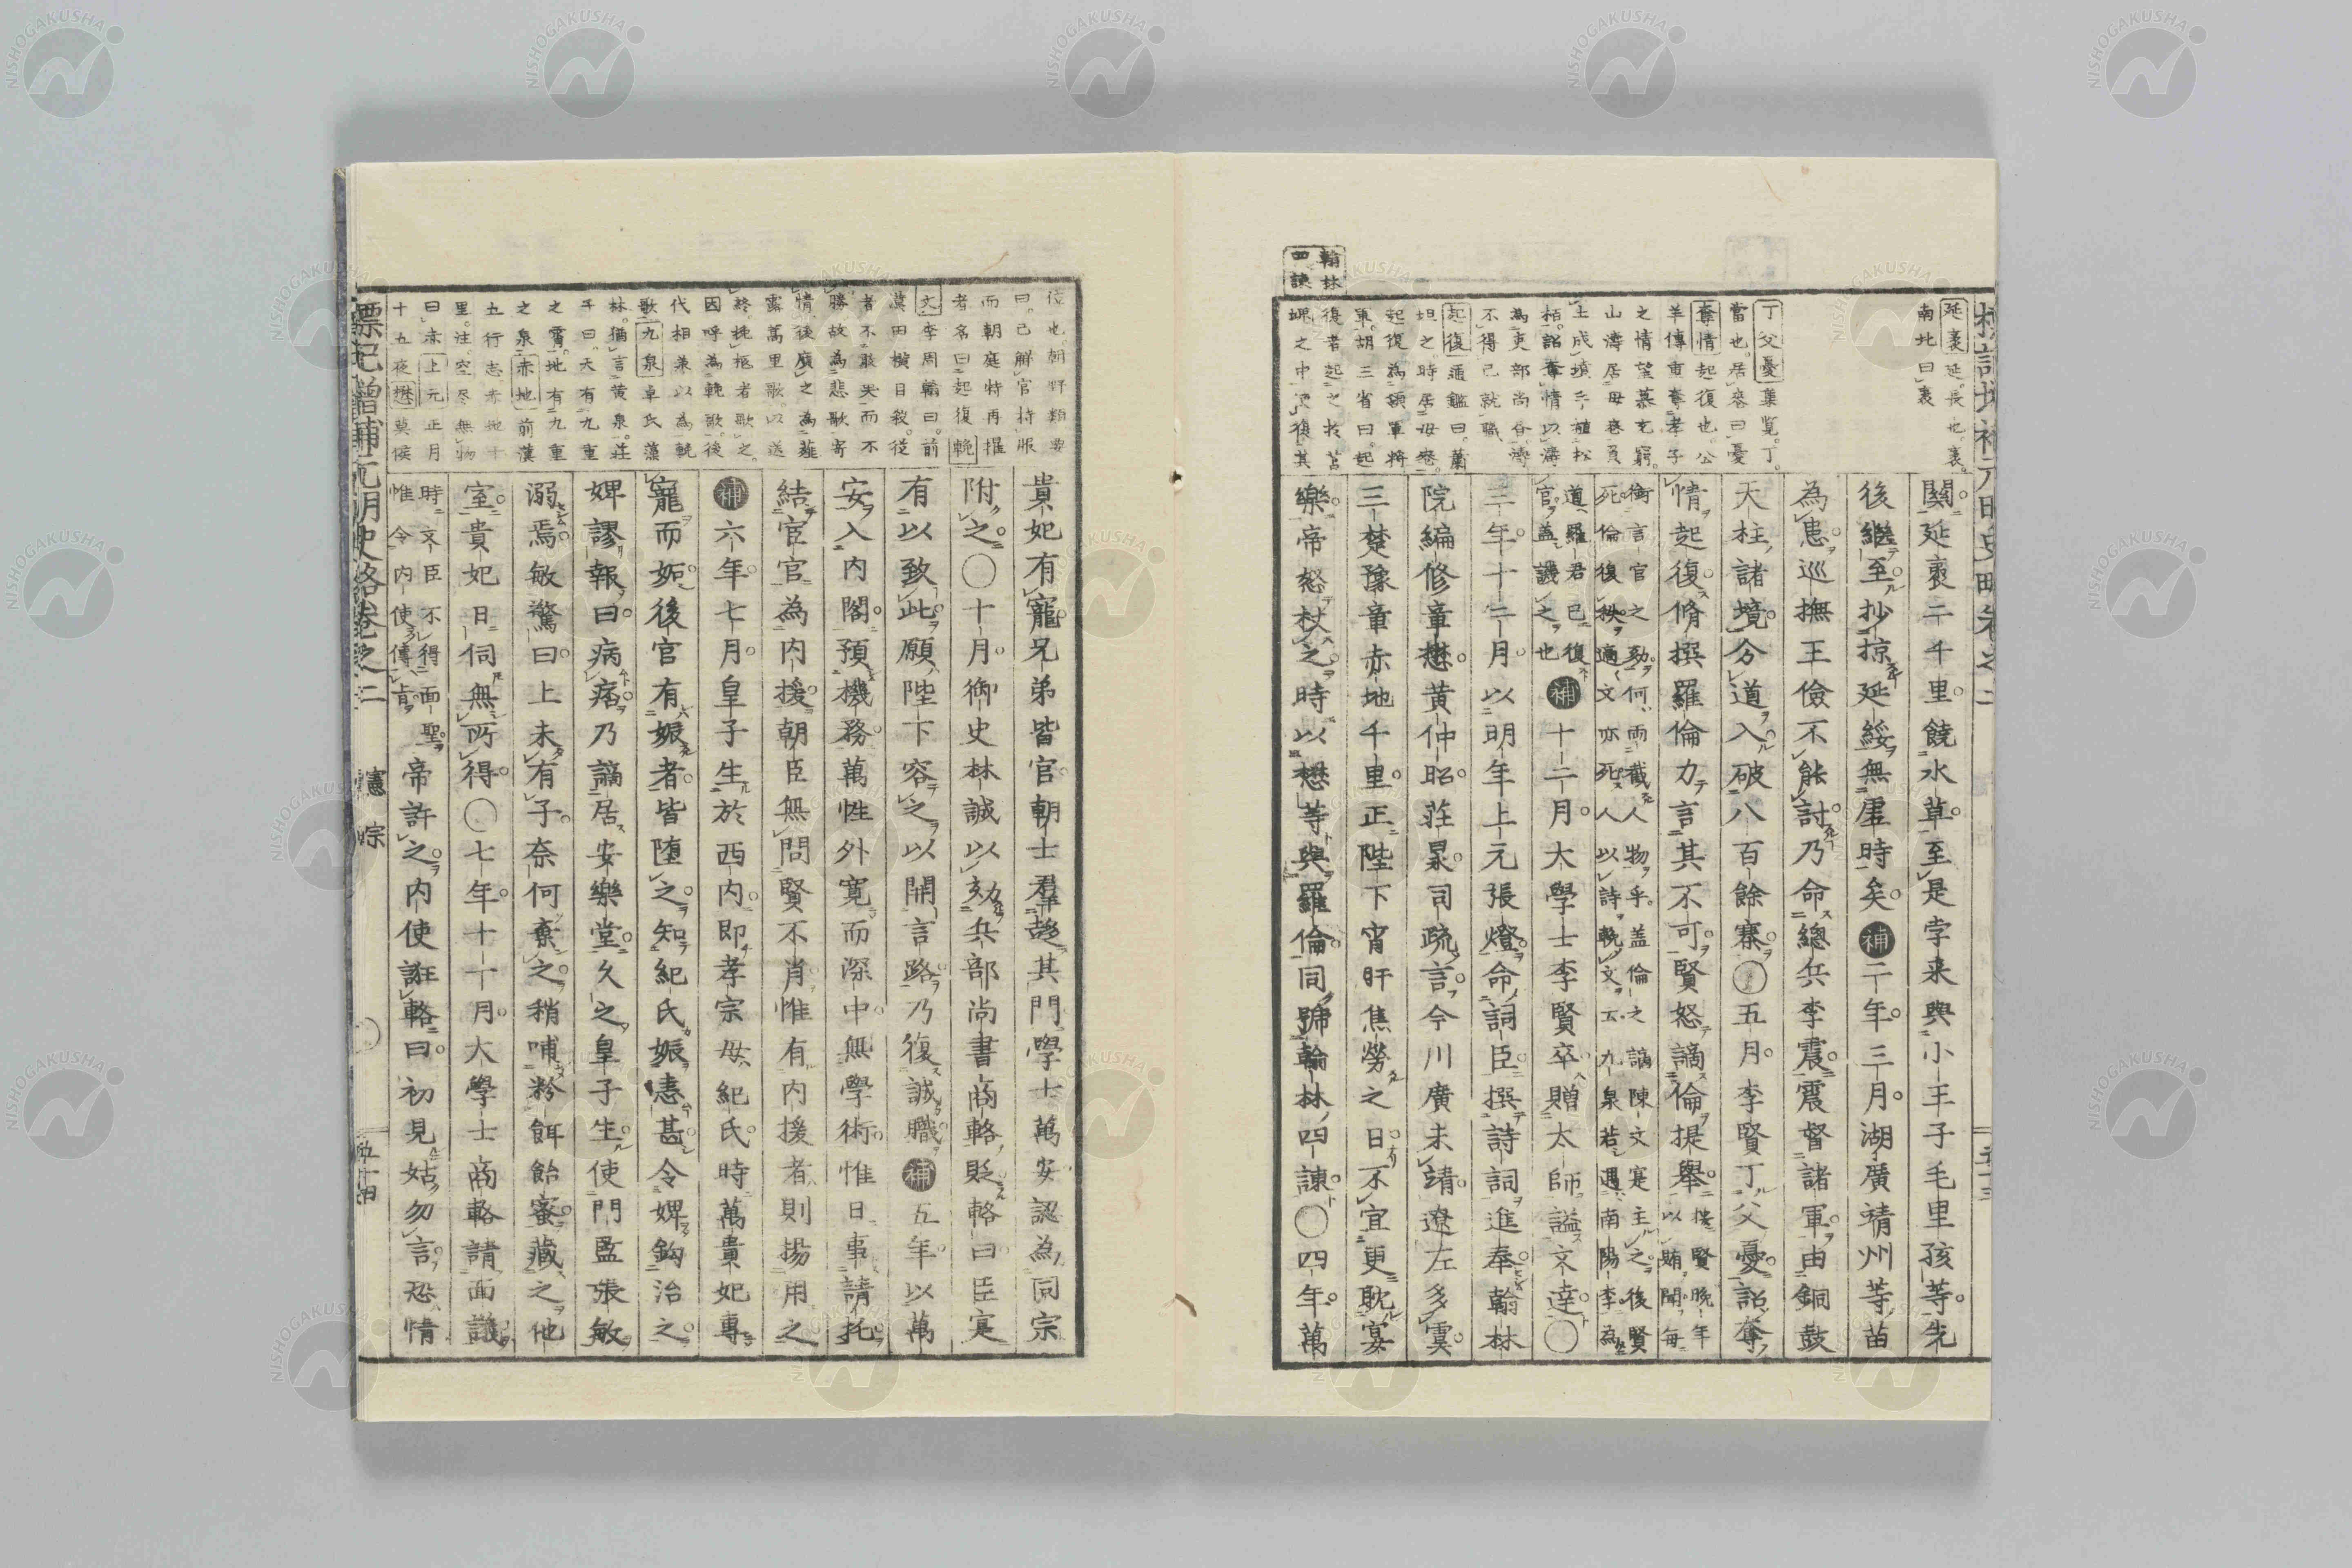 標記增補元明史略卷之二
延袤延長也。袤。
南北曰袤
丁父憂彙覧。丁。
當也。居喪曰憂
奪情起復也。公
羊傳重奪孝子
之情望慕充窮。
山濤居母喪負
土成墳手植松
栢。詔奪情以濤
為吏部尚書。濤
不得已就職
起復通鑑曰。蕭
坦之時居母喪。
起復為領軍將
軍。胡三省曰。起
復者起之於苫
塊之中使復其
翰林四諫
闋。延袤二千里。饒水草。至是孛来與小王子毛里孩等。先
後繼至。抄掠延綏無虛時矣。補二年。三月。湖廣靖州等苗
為患。巡撫王儉不能討。乃命總兵李震。震督諸軍。由銅鼓
天柱諸境。分道入破八百餘寨。○五月。李賢丁父憂。詔奪
情起復。脩撰羅倫力言其不可。賢怒謫倫提舉。按賢晚年
以賄聞每
衡言官之劾。何雨截人人物乎。盖倫之謫陳文寔主之。後賢
死倫復秩。適文亦死人以詩輓文云九泉若遇南陽李為
道羅君已復
官。盖譏之也補十二月。大學士李賢卒贈太師謚文達。○
三年。十二月。以明年上元張燈。命詞臣撰詩詞進奉。翰林
院編修章懋。黄仲昭。莊㫤。司疏言。今川廣未靖。遼左多虞。
三楚豫章赤地千里。正陛下宵旰焦勞之日。不宜更耽宴
樂。帝怒杖之。時以懋等與羅倫。同號翰林四諫○四年。萬
位也。朝野類要
曰。已解官持服
而朝庭特再擢
者名曰起復輓
文李周翰曰。前
漢田横自殺。從
者不敢哭而不
勝故為悲歌寄
情。後廣之為薤
露蒿里歌。以送
終。挽柩者歌之。
因呼為輓歌。後
代相兼以為輓
歌九泉卓氏藻
林。猶言黄泉。莊
子曰。天有九重
之霄。地有九重
之泉赤地前漢
五行志赤地千
里。注。空尽無物
曰赤上元正月
十五夜懋莫候
貴妃有寵。兄弟皆官。朝士羣趍其門。學士萬安認為同宗
附之。○十月。御史林誠以劾兵部尚書商輅。貶輅曰臣寔
有以致此。願陛下容之。以開言路。乃復誠職。補五年。以萬
安入内閣。預機務。萬性外寛而深中。無學術。惟日事請托。
結宦官為内援。朝臣無問賢不肖惟有内援者。則揚用之
補六年。七月。皇子生於西内。即孝宗母紀氏。時萬貴妃專
寵而妬。後官有娠者。皆堕之。知紀氏娠恚甚。令婢鈎治之。
婢謬報曰。病痞。乃謫居安樂堂。久之皇子生。使門監張敏
溺焉。敏驚曰。上未有子。奈何棄之。稍哺粉餌飴蜜。藏之他
室。貴妃日伺無所得。○七年。十一月。大學士商輅請面議
時文臣不得面聖。
惟令内使傳旨帝許之。内使誑輅曰。初見姑勿言。恐情
標記增補元明史略卷之二　憲宗　五十四